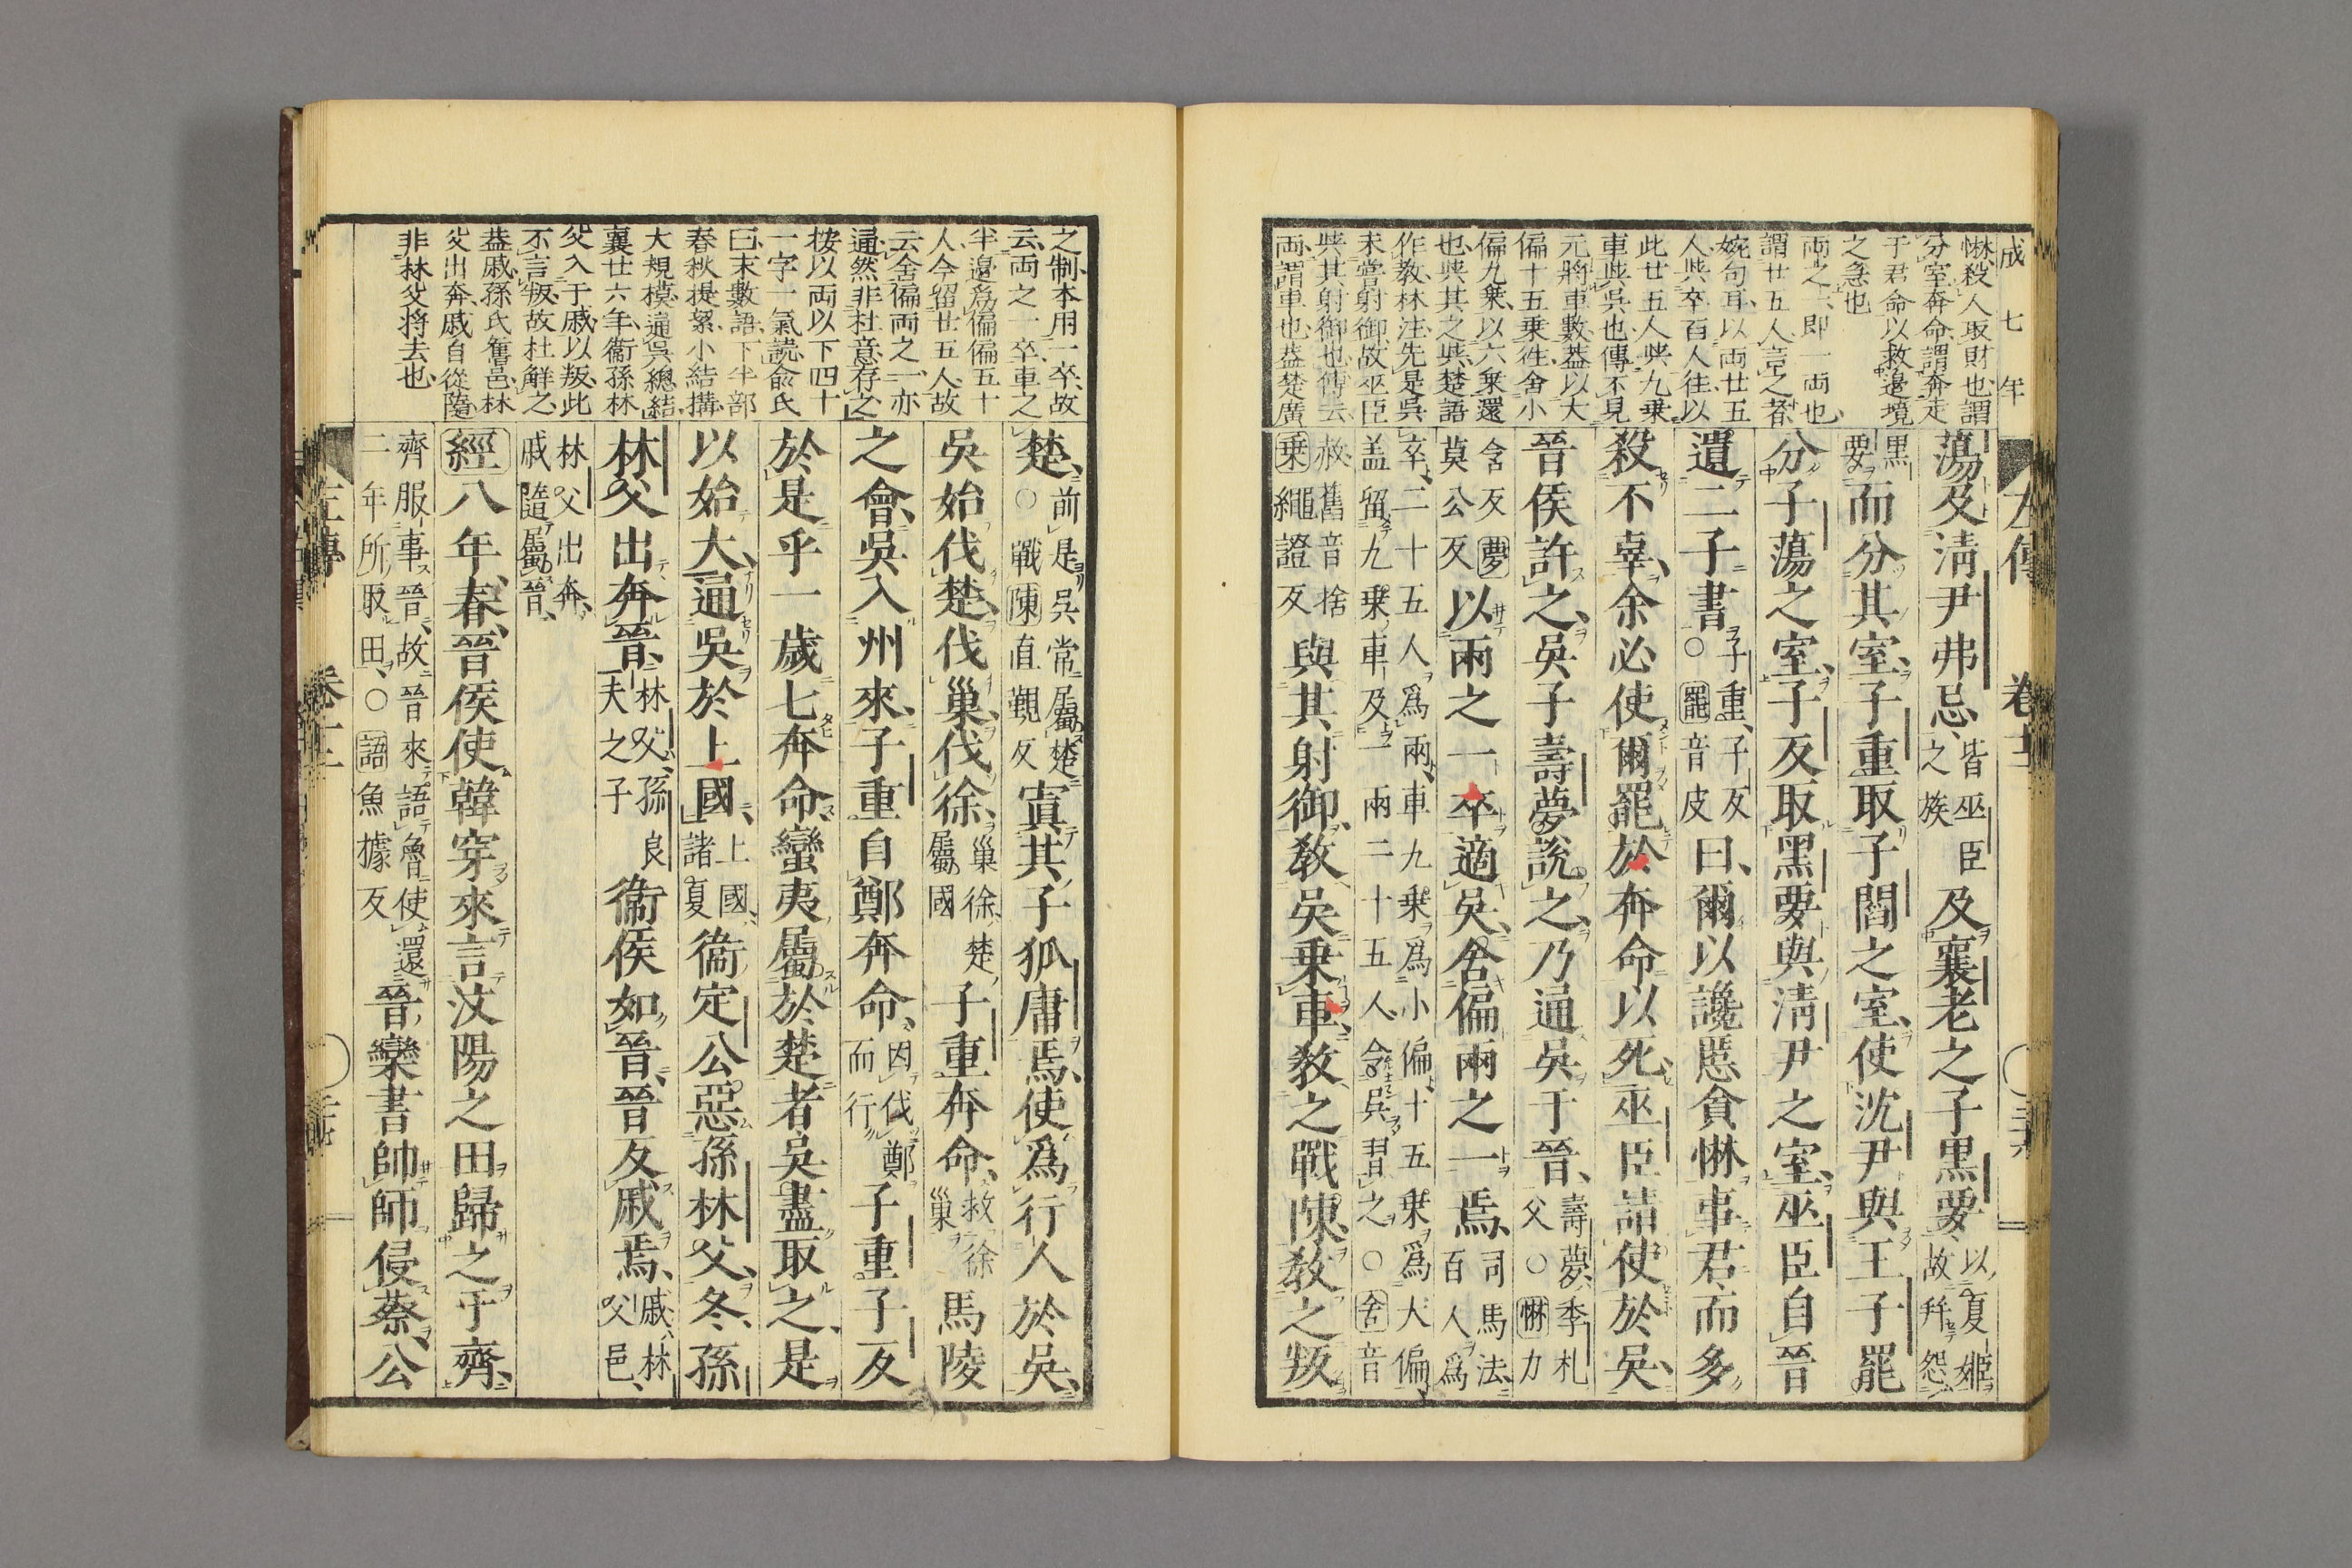 成七年
惏殺人取財也謂
分室奔命謂奔走
于君命以救邉境
之急也
兩之一即一兩也
謂廿五人言之者
婉句耳以兩廿五
人㒰卒百人往以
此廿五人㒰九乗
車㒰呉也傳不見
元將車數葢以大
偏十五乗徃舍小
偏九乗以六乗還
也㒰其之㒰楚語
作教林注先是呉
未嘗射御故巫臣
㒰其射御也傳云
兩謂車也葢楚廣
左傳 卷十二
蕩及淸尹弗忌皆巫臣之族及襄老之子黒要以夏姬故幷怨
黒要而分其室子重取子閻之室使沈尹與王子罷
分子蕩之室子反取黒要與淸尹之室巫臣自晉
遺二子書子重子反○罷音皮曰爾以讒慝貪惏事君而多
殺不辜余必使爾罷於奔命以死巫臣請使於吳
晉侯許之吳子壽夢說之乃通吳于晉壽夢季札父○惏力
含反夢莫公反以兩之一卒適吳舍偏兩之一焉司馬法百人爲
卒二十五人爲兩車九乗爲小偏十五乗爲大偏
盖留九乗車及一兩二十五人令吳習之○舍音
赦舊音捨乗繩證反與其射御教吳乗車教之戰陳教之叛
之制本用一卒故
云兩之一卒車之
半邉爲偏偏五十
人今留廿五人故
云舍偏兩之一亦
通然非杜意存之
按以兩以下四十
一字一氣読兪氏
曰末數語下半部
春秋提絜小結搆
大規模通呉總結
襄廿六年衞孫林
父入于戚以叛此
不言叛故杜解之
葢戚孫氏舊邑林
父出奔戚自從隨
非林父将去也
楚前是吳常屬楚○戰陳直覲反寘其子狐庸焉使爲行人於吳
吳始伐楚伐巢伐徐巢徐楚屬國子重奔命救徐巢馬陵
之會吳入州來子重自鄭奔命因伐鄭而行子重子反
於是乎一歲七奔命蠻夷屬於楚者吳盡取之是
以始大通吳於上國上國諸夏衞定公惡孫林父冬孫
林父出奔晉林父孫良夫之子衞侯如晉晉反戚焉戚林父邑
林父出奔戚隨屬晉
經八年春晉侯使韓穿來言汶陽之田歸之于齊
齊服事晉故晉來語魯使還二年所取田○語魚據反晉欒書帥師侵蔡公
左傳 卷十二